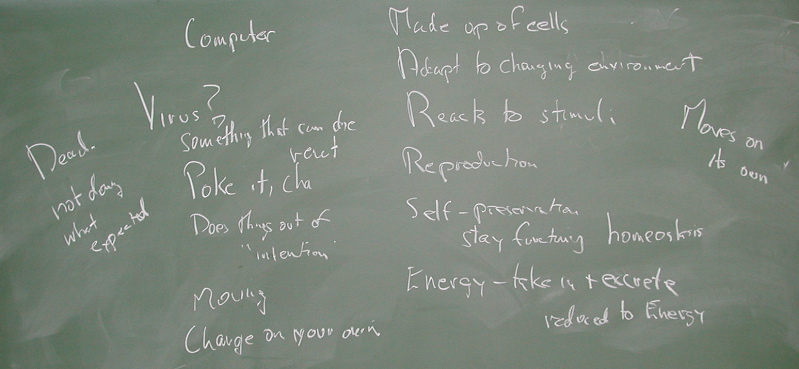 Computer
Virus?
Something that can die
Poke it, cha
Does things out of
"intention"
Moving
Change on your own
Dead.
not doing
what
expected
Made up of cells
Adapt to changing environment
Reacts to stimuli
Reproduction
Self-preservation
stay functuing homeostsis
Energy - take in + excrete
reduced to Energy
Moves on
its own